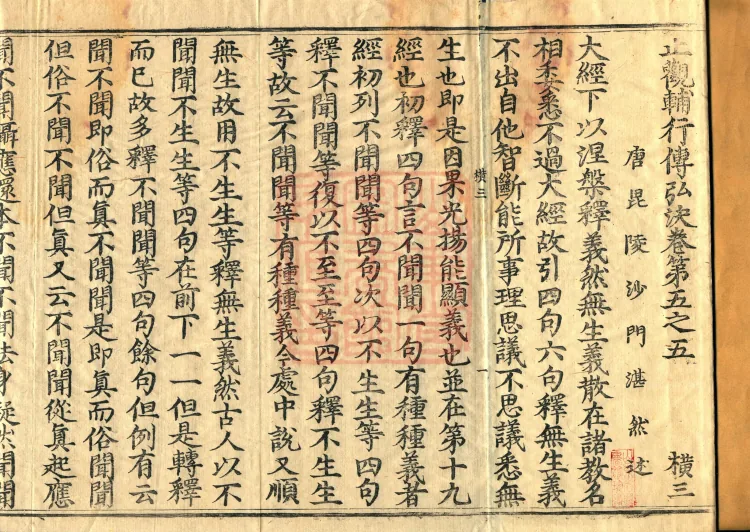 止觀輔行傳弘決卷第五之五 橫三
唐毘陵沙門湛然述
大經下以涅槃釋義然無生義散在諸教名
相委悉不過大經故引四句六句釋無生義
不出自他智斷能所事理思議不思議悉無
橫三 一
生也即是因果光揚能顯義也並在第十九
經也初釋四句言不聞聞一句有種種義者
經初列不聞聞等四句次以不生生等四句
釋不聞聞等復以不至至等四句釋不生生
等故云不聞聞等有種種義今處中說又順
無生故用不生生等釋無生義然古人以不
聞聞不生生等四句在前下一一但是轉釋
而已故多釋不聞聞等四句餘句但例有云
聞不聞即俗而真不聞聞是即真而俗聞聞
但俗不聞不聞但真又云不聞聞從真起應
聞不聞攝應還本不聞不聞法身凝然聞聞